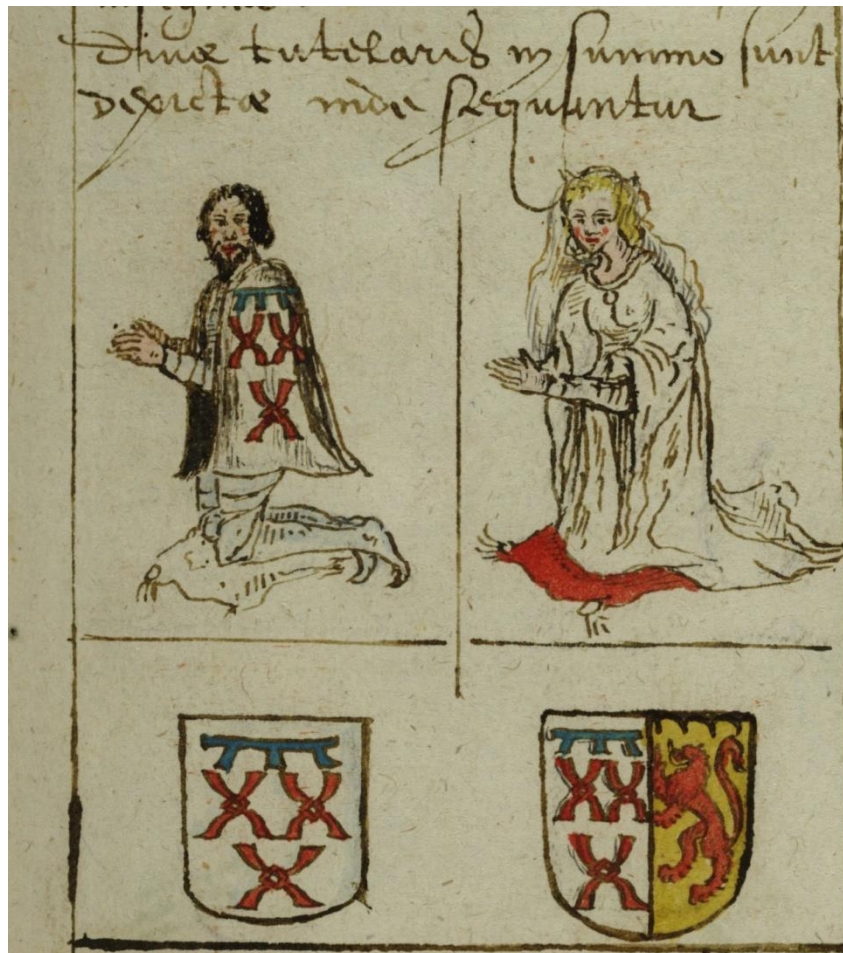 divæ tutelaris in summo sunt
depictæ inde sequuntur